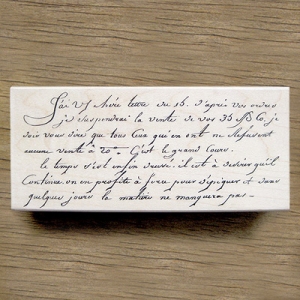 J'ai V/ chère lettre du 15. d'après vos ordres
je suspendrai la vente de vos 35 B C/o, je
dois vous dire que tous Ceux qui en ont ne Refusent
aucune vente à 20 C'est le grand Cours.
le temps s'est enfin il est à desirer qu'il
Continue on en profite à force pour dépiquer et dans
quelques jours la matière ne manquera pas